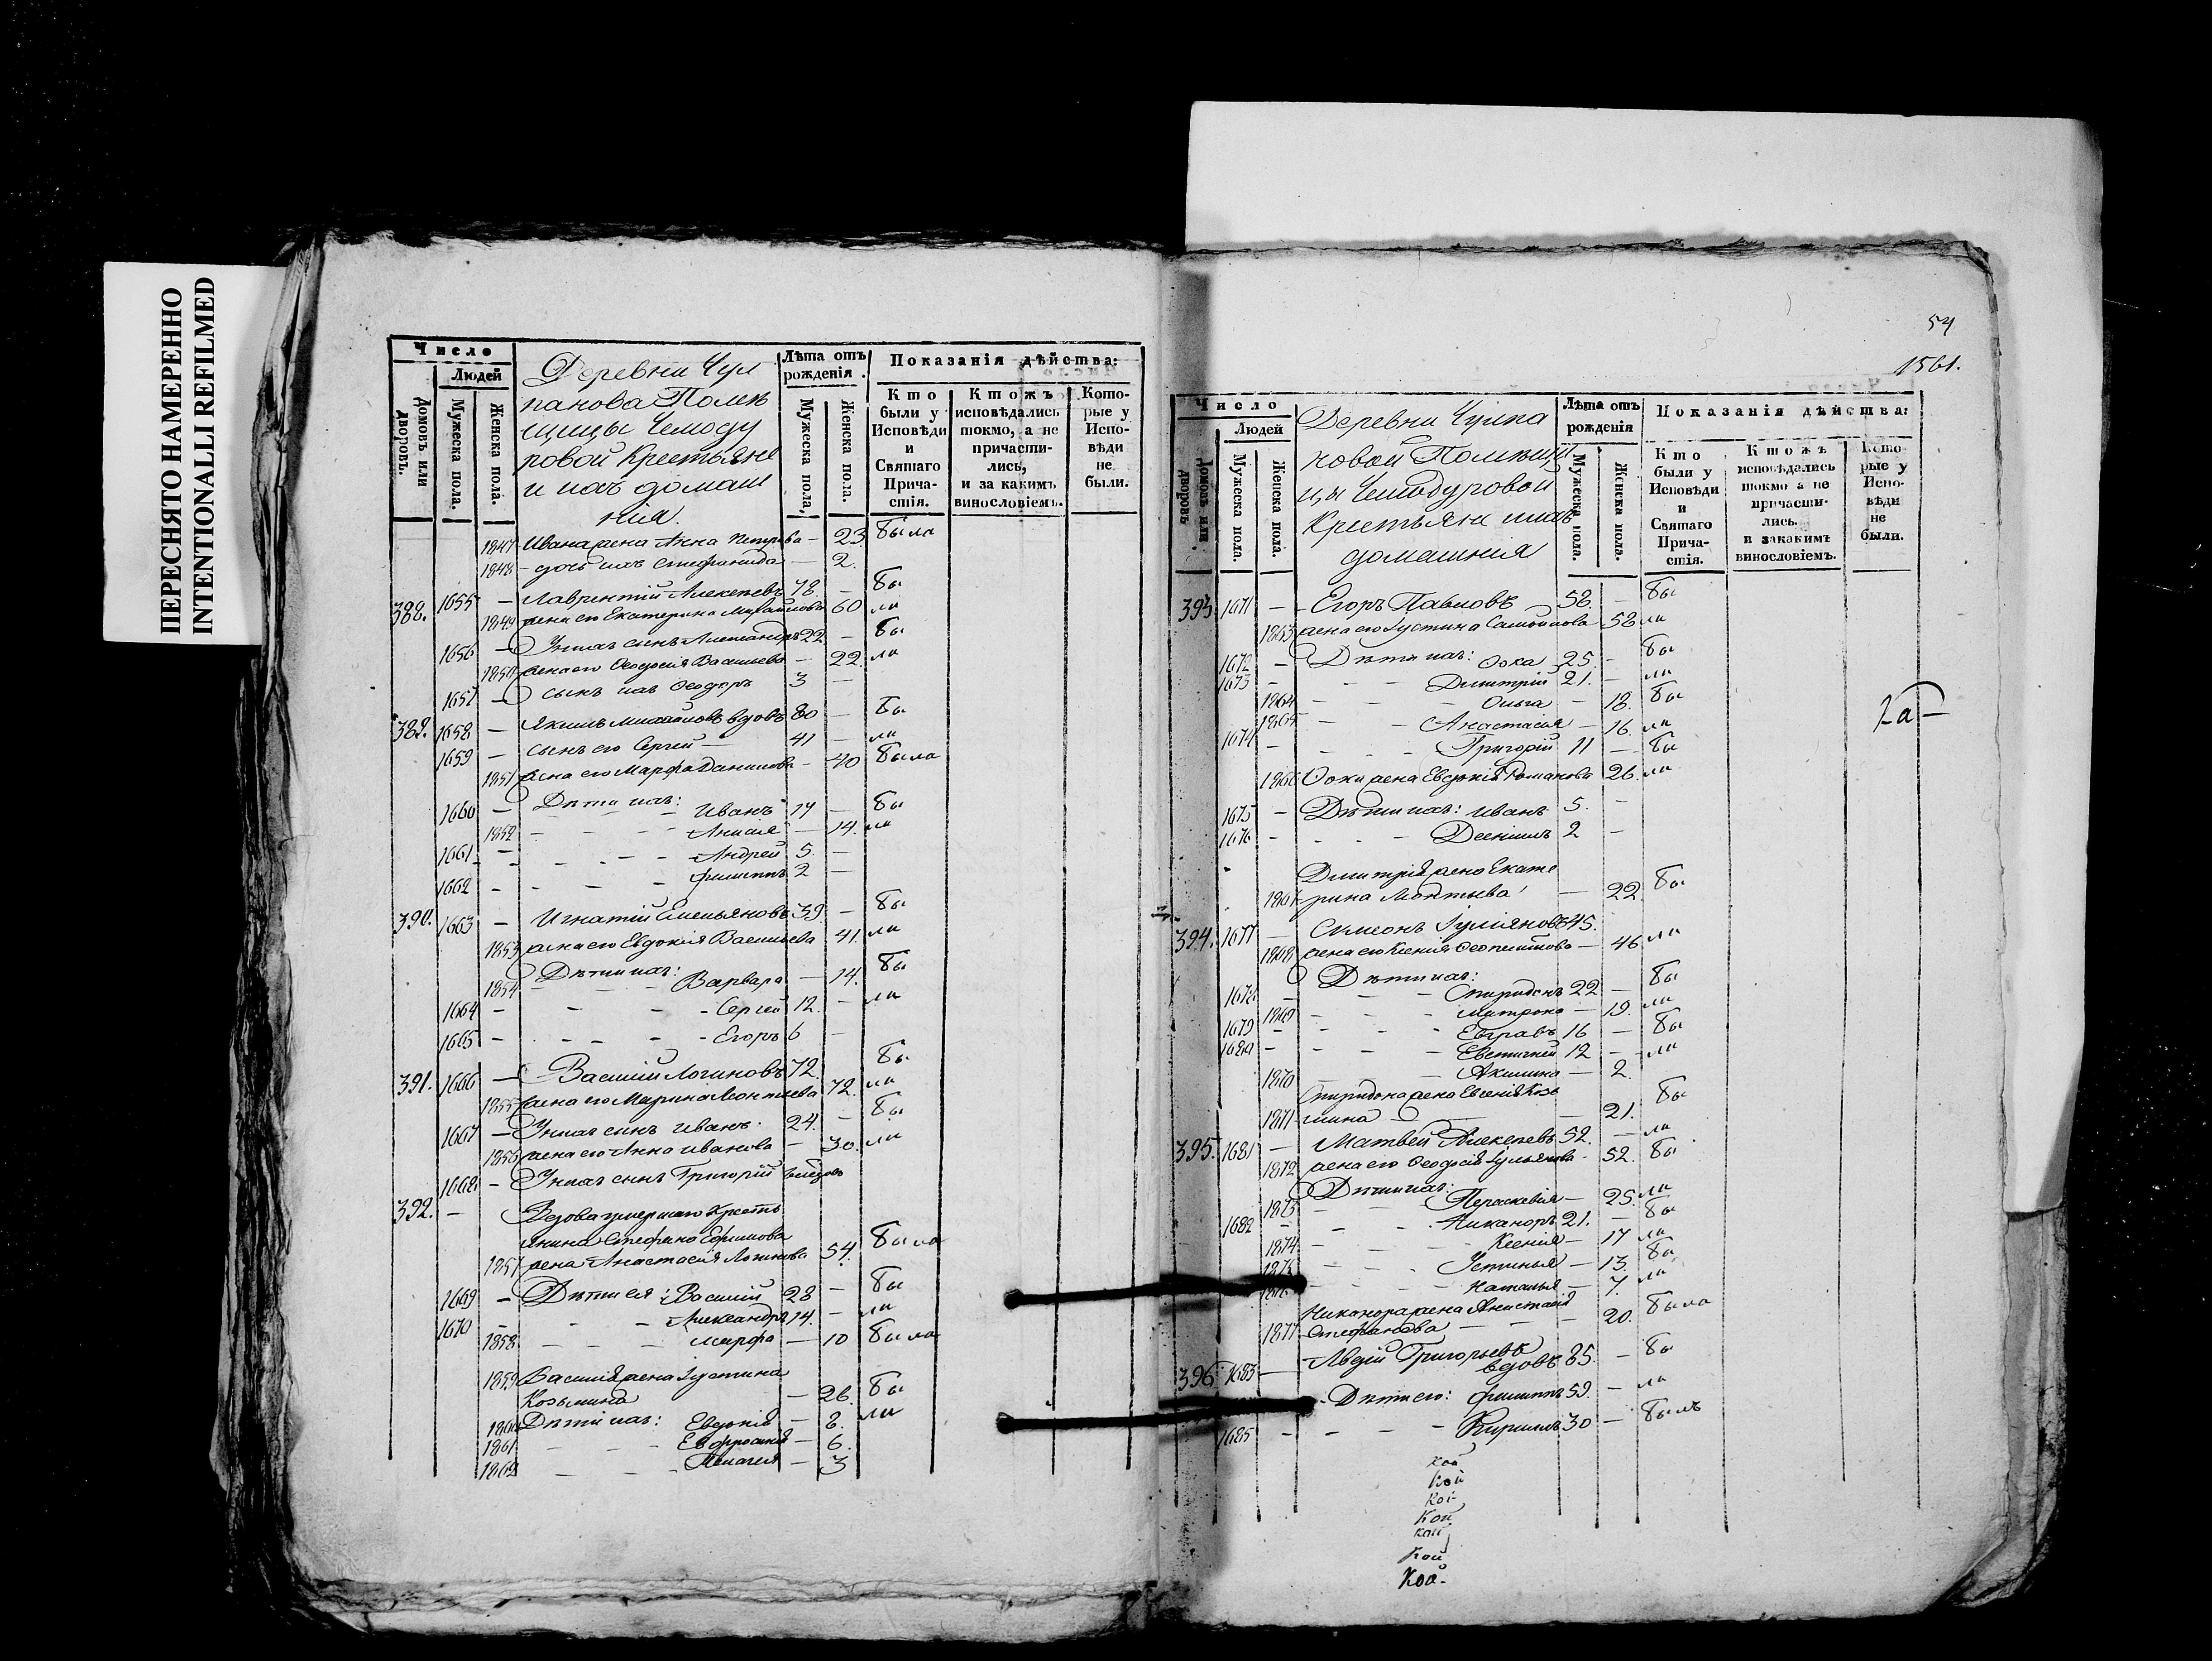 ПЕРЕСНЯТО НАМЕРЕННО
INTENTIONALLI REFILMED
Число
Людей
Домовъ или дворовъ.
Мужеска пола.
Женска пола.
Деревни Чул
панова Помѣ
щицы Чемоду
ровой Крестьяне
и ихъ домаш
нія.
Лѣта отъ рожденія.
Мужеска пола.
Женска пола.
Показанія дѣйства:
Кто были у Исповѣди и Святаго Прича-стія.
Ктожъ исповѣдались токмо, а не причасти-лись, и за какимъ винословіемъ.
Кото-рые у Испо-вѣди не были.
1847 Ивана жена Анна Петрова - 23 была
1848 - дочь ихъ Стефанида - 2.
388. 1655 - Лаврентій Алексѣевъ 78. - бы
1849 жена его Екатерина Михайлова 60 ли
1656 - У нихъ сынъ Александръ 22 - бы
1850 жена его Ѳеодосія Васильева - 22 ли
1657 - сынъ ихъ Ѳеодоръ 3 -
389. 1658 - Якимъ Михайловъ вдовъ 80 - бы
1659 - сынъ его Сергей - 41 - ли
1851 жена его Марфа Данилова - 40 была
1660 - Дѣти ихъ: Иванъ 17 - бы
1852 - - - Анисія - 14. ли
1661 - - - - Андрей 5. -
1662 - - - - Филиппъ 2 -
390. 1663 - Игнатій Емельяновъ 39 - бы
1853 жена его Евдокія Васильева 41. ли
1854 Дѣти ихъ: Варвара - 14. бы
1664 - - - Сергей 12. - ли
1665 - - - - Егоръ 6 -
391. 1666 - Василій Логиновъ 72. бы
1855 жена его Марина Леонтьева 72. ли
1667 - У нихъ сынъ Иванъ. 24. - бы
1856 жена его Анна Иванова - 30. ли
1668 - У нихъ сынъ Григорій
392. - Вдова умершаго Кресть
янина Стефана Ефимова
1857 жена Анастасія Логинова 54. была
1669 - Дѣти ея: Василій 28 - бы
1670 - - - Александръ 14. - ли
1858 - - - Марфа - 10 была
1859 Василія жена Іустина
Козьмина - 26. бы
1860 Дѣти ихъ: Евдокія - 8. ли
1861 - - - Евфросинія - 6.
1862 - - - Пелагея - 3
54
1561.
Число
Людей
Домовъ или дворовъ
Мужеска пола.
Женска пола.
Деревни Чулпа
новой Помѣщи
цы Чемодуровой
Крестьяне и ихъ
домашнія
Лѣта отъ рожденія
Мужеска пола.
Женска пола.
Показанія дѣйства:
Кто были у Исповѣди и Святаго Прича-стія.
Ктожъ исповѣдались токмо а не причасти-лись. и за какимъ винословіемъ.
Кото-рые у Испо-вѣди не были.
393. 1671 - - Егоръ Павловъ 58. - бы
1863 жена его Іустина Самойлова - 58 ли
1672 - Дѣти ихъ: Ѳока 25. - бы
1673 - - - Димитрій 21. - ли
1864 - - - Ольга - 18. бы
1865 - - - Анастасія - 16. ли
1674 - - - - Григорій 11 - бы
1866 Ѳоки жена Евдокія Романова 26. ли
1675 - Дѣти ихъ: Иванъ 5. -
1676 - - - 2 -
Димитрія жена Екате
1867 рина Леонтьева - 22. бы
394. 1677 - Симеонъ Іуліановъ 45.
1868 жена его Ксенія - 46 ли
Дѣти ихъ:
1678 - - - Спиридонъ 22 - бы
1869 - - - Матрона - 19. ли
1679 - - - - 16 - бы
1680 - - - - Евстигней 12 - ли
1870 - - Акилина - 2.
Спиридона жена Евгенія Козь
1871 мина - - 21. бы
395. 1681 - Матвей Алексѣевъ 52. - ли
1872 жена его Ѳеодосія Іульянова - 52. бы
Дѣти ихъ:
1873 - - Параскевія - 25. ли
1682 - - - Никаноръ 21. - бы
1874 - - - Ксенія - 17 ли
1875 - - - Устинья - 13. бы
1876 - - - Наталья - 7. ли
Никанора жена Анастасія
1877 Стефанова - - - 20. была
396. 1683 - Авдій Григорьевъ
вдовъ 85. - бы
Дѣти его: Филиппъ 59. - ли
1685 - - - - Кирилъ 30 - былъ
кой
кой
кой
кой
кой
кой
кой